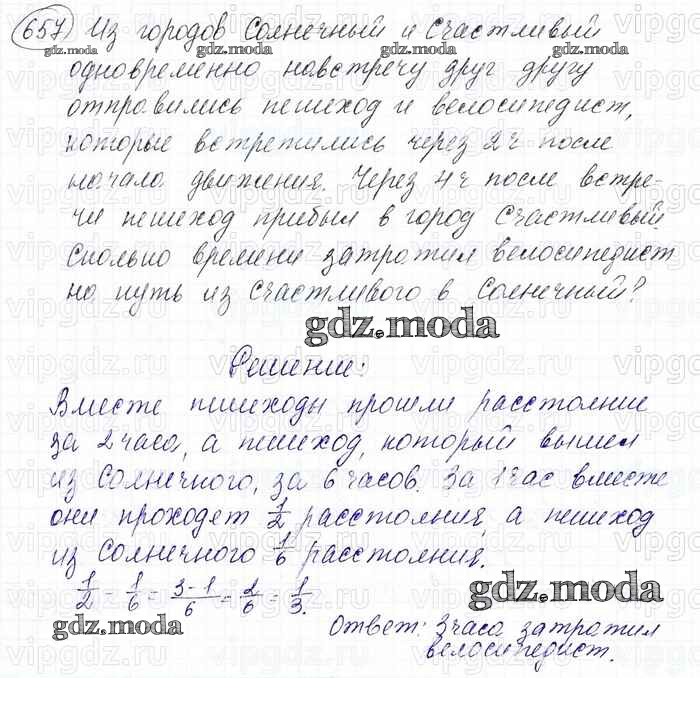 657) Из городов Солнечный и Счастливый
gdz.moda gdz.moda gdz.moda
одновременно навстречу друг другу
отправились пешеход и велосипедист,
которые встретились через 2 ч после
начала движения. Через 4 ч после встре-
чи пешеход прибыл в город Счастливый.
Сколько времени затратил велосипедист
на путь из Счастливого в Солнечный?
gdz.moda
Решение:
Вместе пешеходы прошли расстояние
за 2 часа, а пешеход, который вышел
из Солнечного, за 6 часов. За 1 час вместе
они проходят 1/2 расстояния, а пешеход
из Солнечного 1/6 расстояния.
1/2 - 1/6 = (3-1)/6 = 2/6 = 1/3.
gdz.moda
gdz.moda
Ответ: 3 часа затратил
велосипедист.